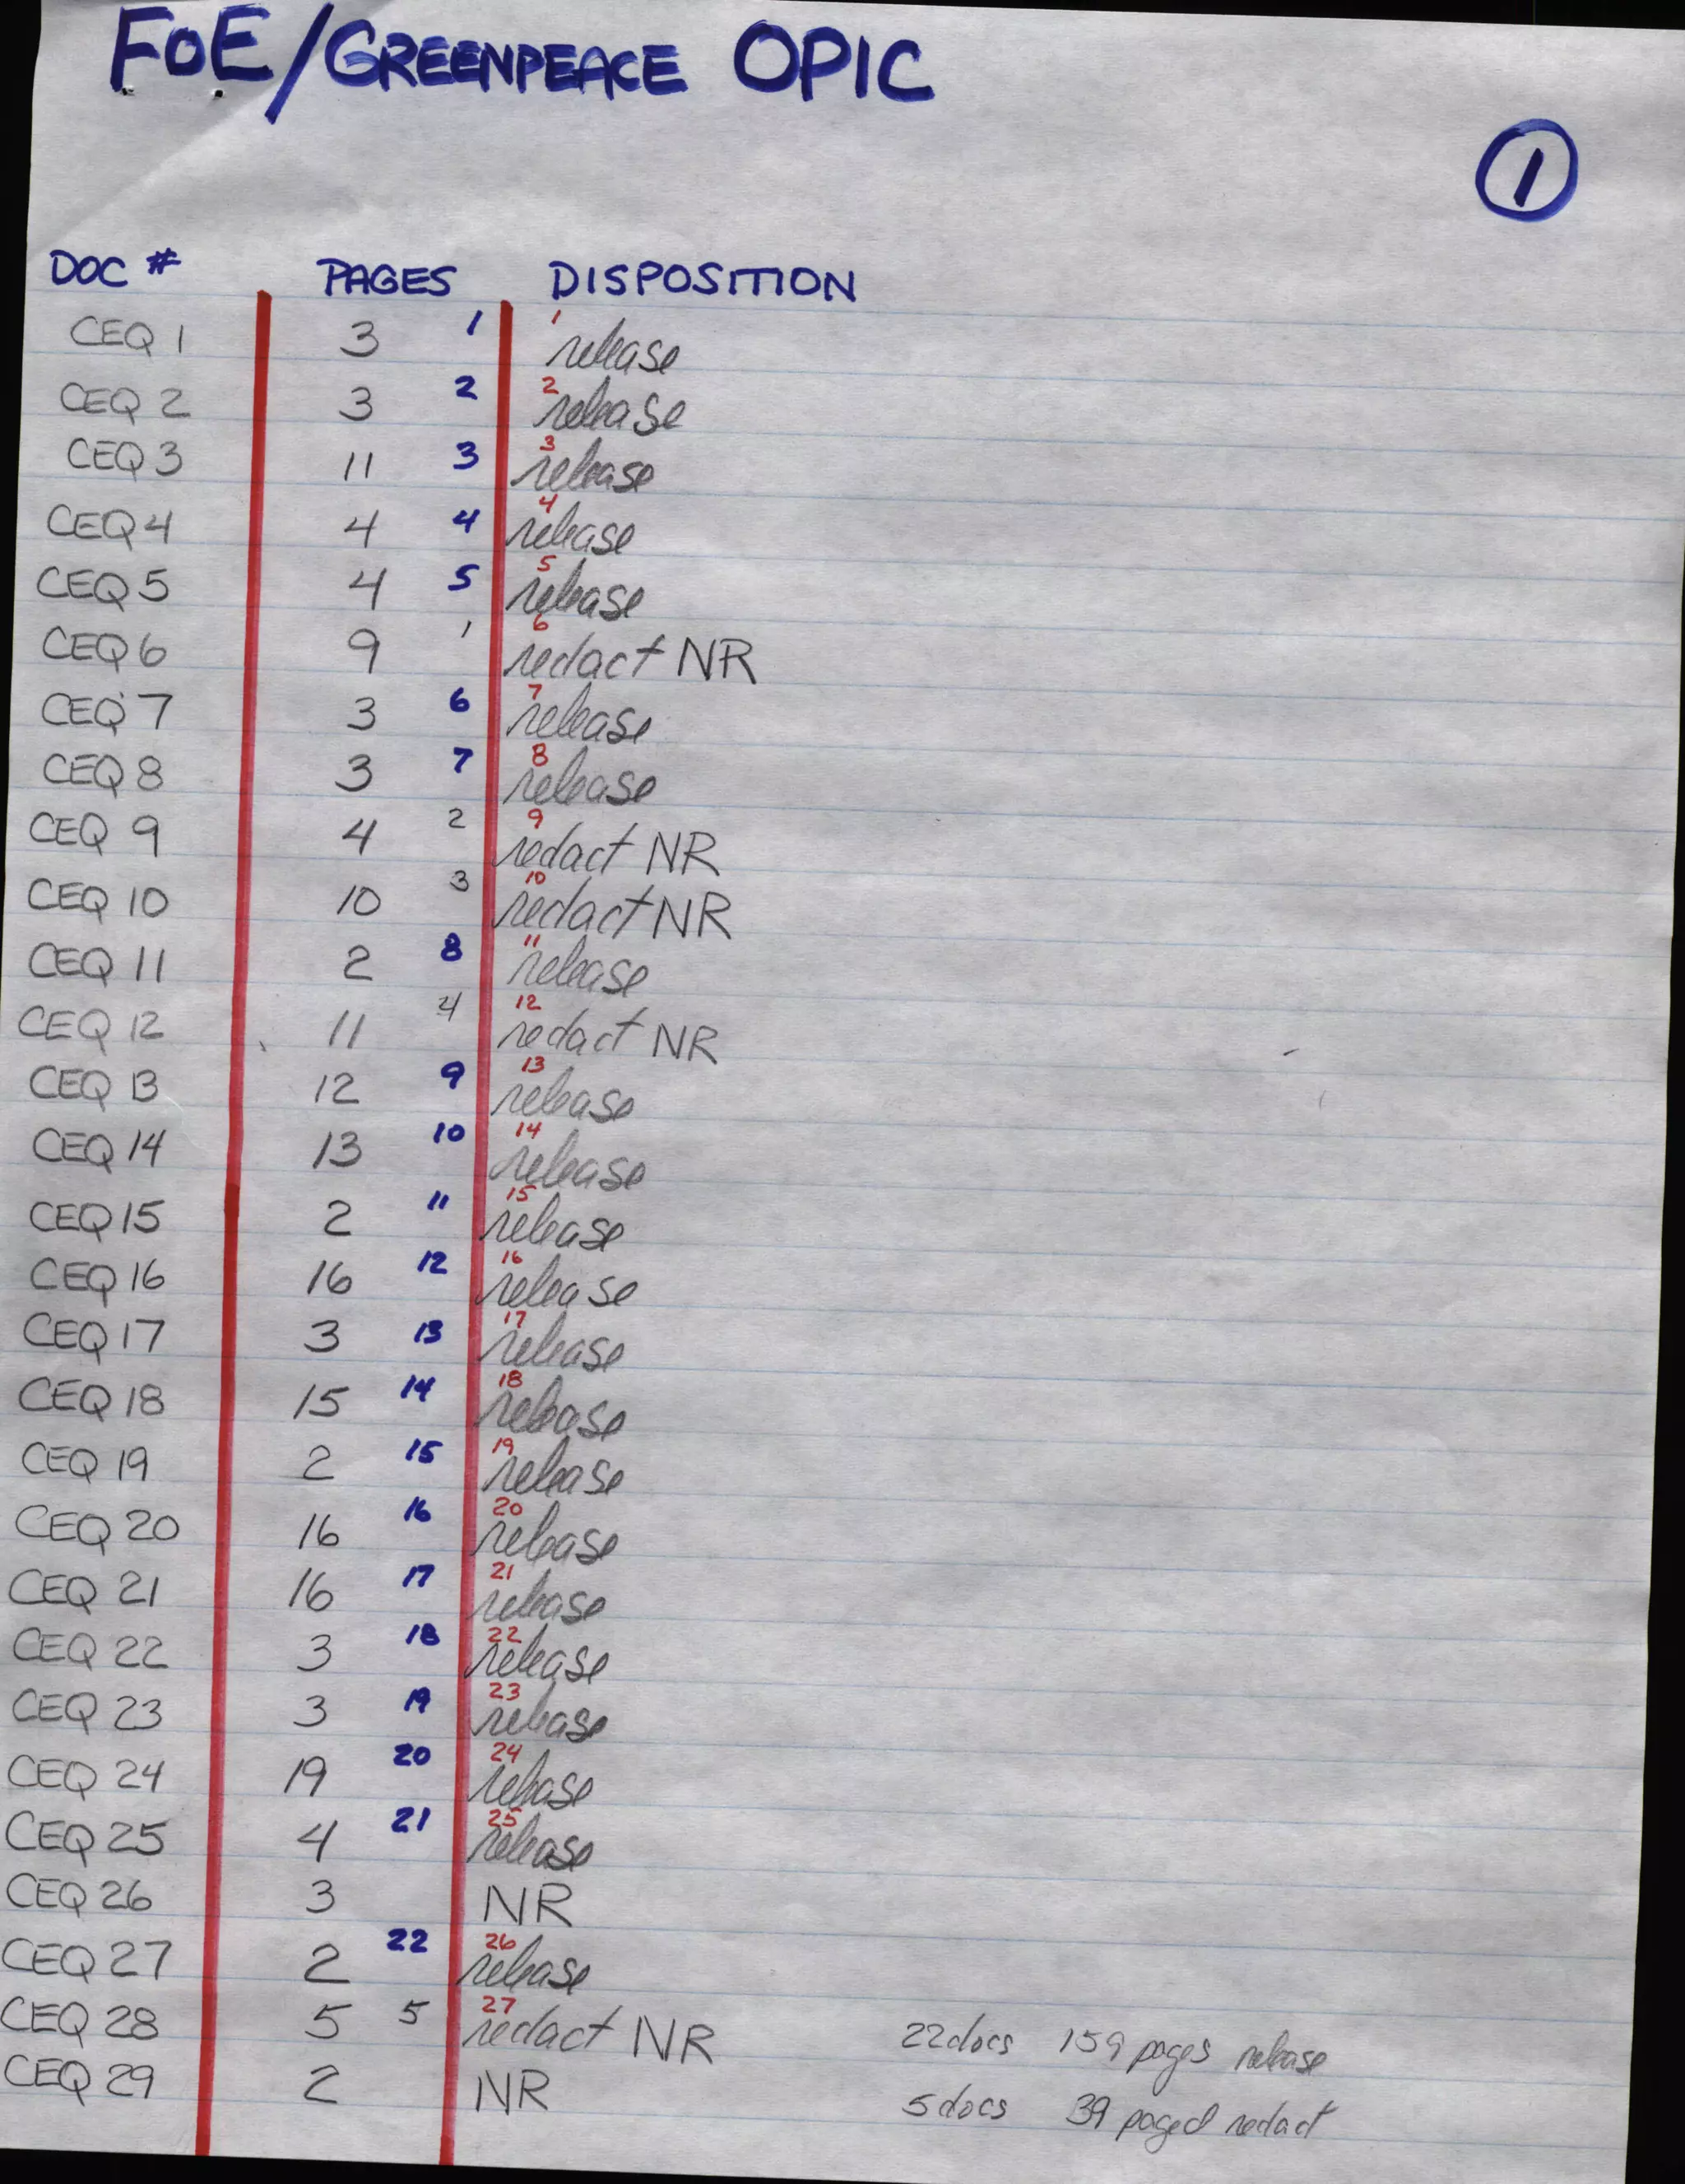 FOE/GREENPEACE OPIC
1
DOC # PAGES DISPOSITION
CEQ 1 3 1 1 release
CEQ 2 3 2 2 release
CEQ 3 11 3 3 release
CEQ 4 4 4 4 release
CEQ 5 4 5 5 release
CEQ 6 9 1 6 redact NR
CEQ 7 3 6 7 release
CEQ 8 3 7 8 release
CEQ 9 4 2 9 redact NR
CEQ 10 10 3 10 redact NR
CEQ 11 2 8 11 release
CEQ 12 11 4 12 redact NR
CEQ 13 12 9 13 release
CEQ 14 13 10 14 release
CEQ 15 2 11 15 release
CEQ 16 16 12 16 release
CEQ 17 3 13 17 release
CEQ 18 15 14 18 release
CEQ 19 2 15 19 release
CEQ 20 16 16 20 release
CEQ 21 16 17 21 release
CEQ 22 3 18 22 release
CEQ 23 3 19 23 release
CEQ 24 19 20 24 release
CEQ 25 4 21 25 release
CEQ 26 3 NR
CEQ 27 2 22 26 release
CEQ 28 5 5 27 redact NR 22 docs 159 pages release
CEQ 29 2 NR 5 docs 39 paged redact